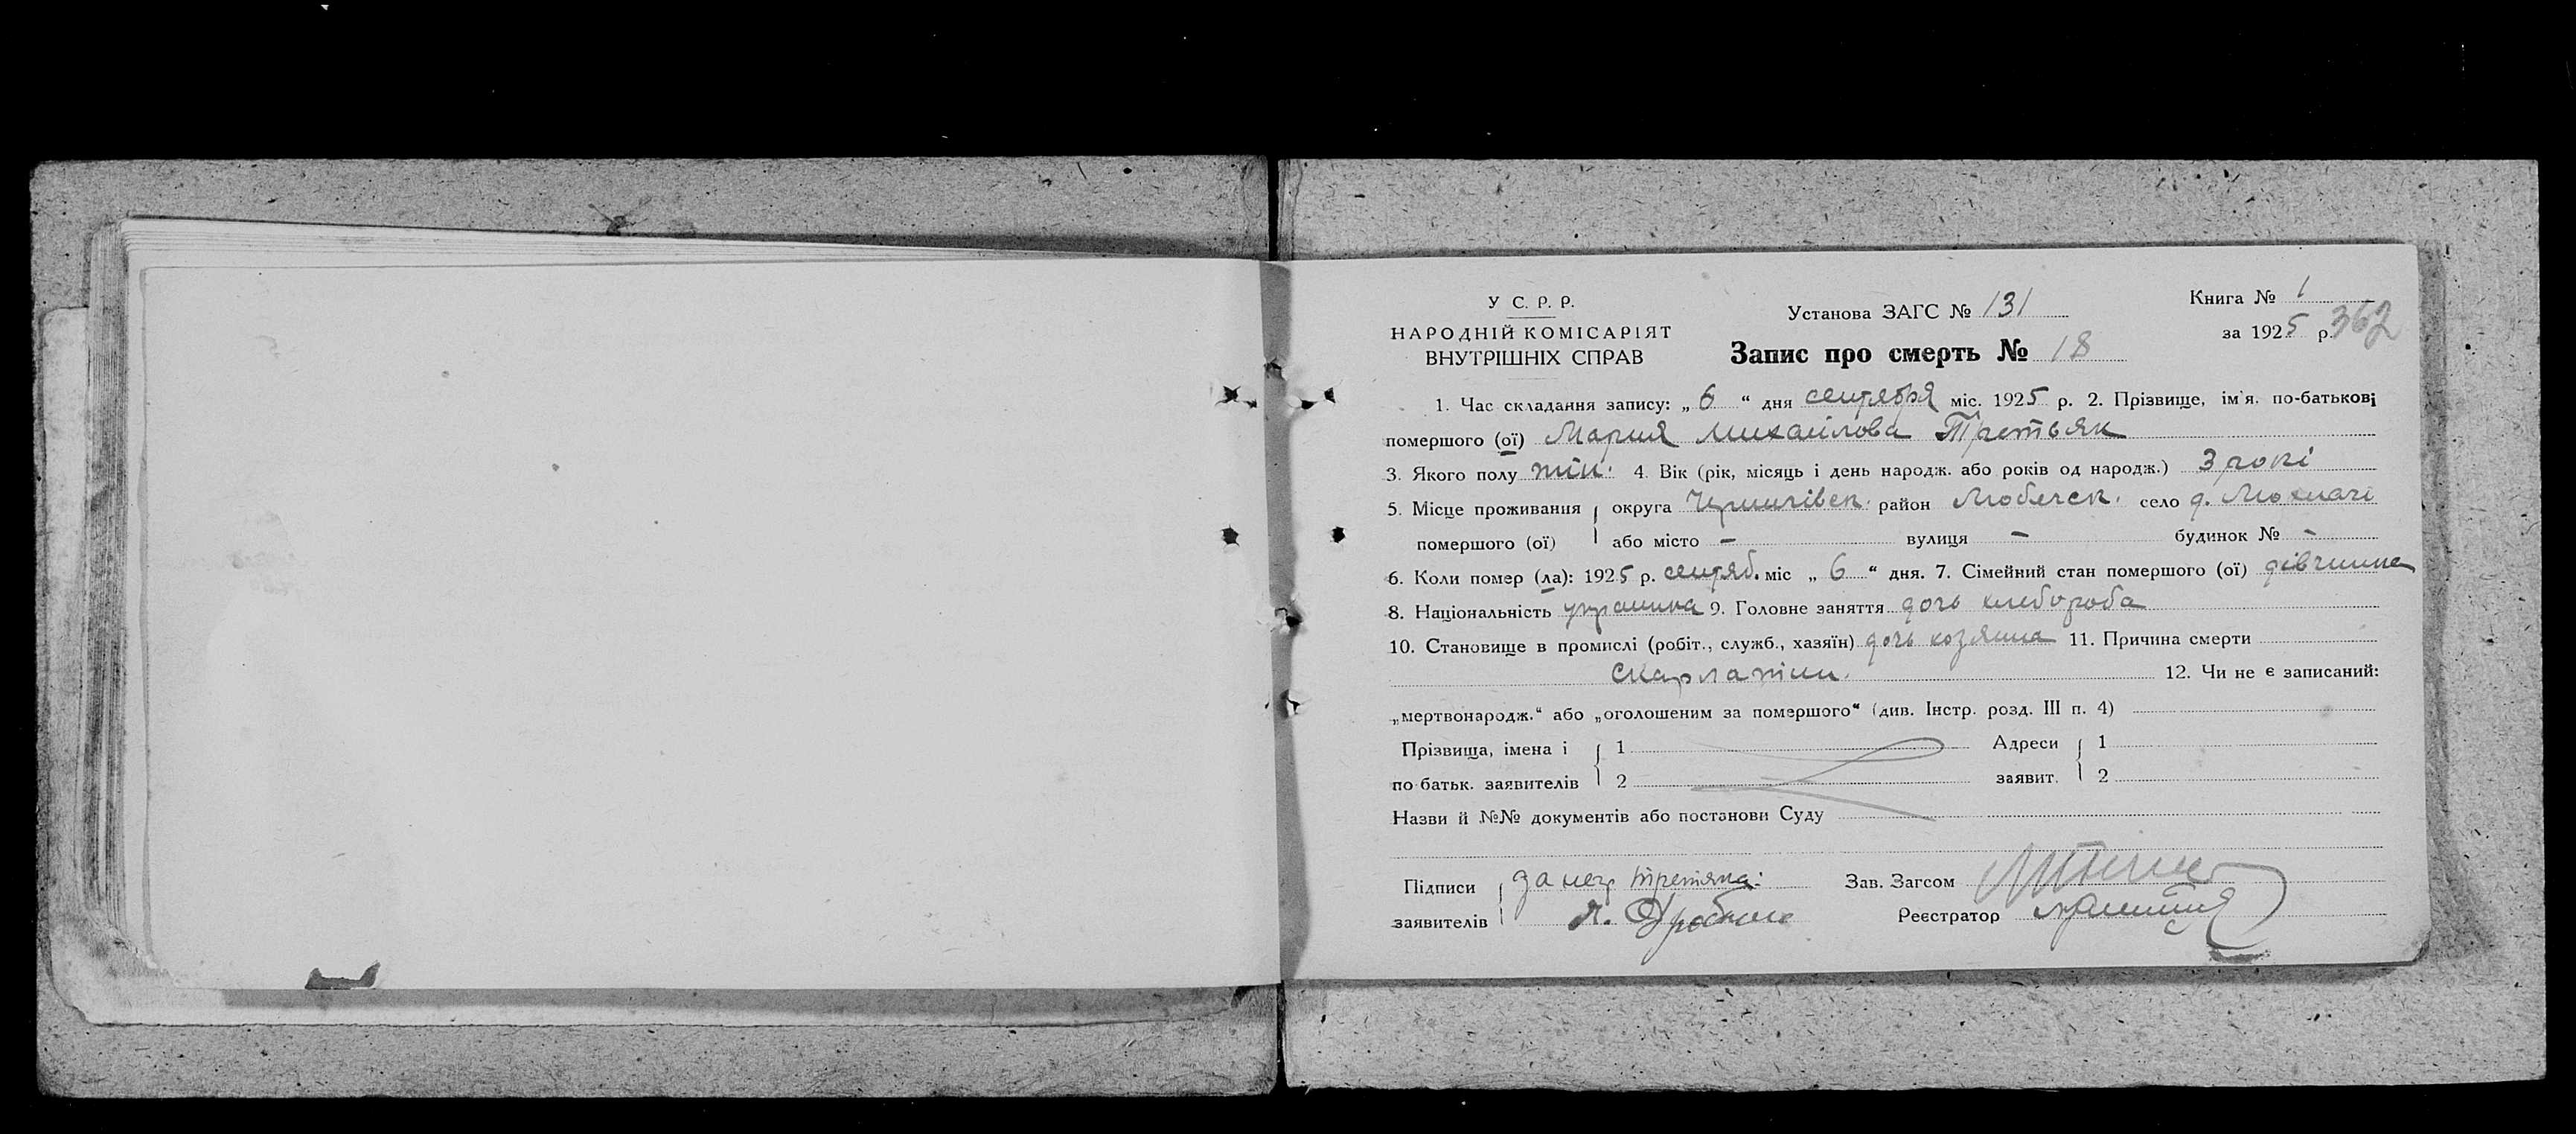 У С. Р. Р.
НАРОДНІЙ КОМІСАРІЯТ
ВНУТРІШНІХ СПРАВ
Установа ЗАГС № 131
Запис про смерть № 18
Книга № 1
за 1925 р. 362
1. Час складання запису: „ 6 “ дня сентября міс. 1925 р. 2. Прізвище, ім'я, по-батькові
помершого (ої) Мария Михайлова Третьяк
3. Якого полу жін. 4. Вік (рік, місяць і день народж. або років од народж.) 3 роки
5. Місце проживання округа Чернигівск. район Любечск. село д. Мохначі
помершого (ої) або місто – вулиця – будинок № –
6. Коли помер (ла): 1925 р. сентяб. міс „ 6 “ дня. 7. Сімейний стан помершого (ої) дівчинка
8. Національність украинка 9. Головне заняття дочь хлебороба
10. Становище в промислі (робіт., служб., хазяїн) дочь хозяина 11. Причина смерти
Скарлатіни. 12. Чи не є записаний:
„мертвонародж.“ або „оголошеним за помершого“ (див. Інстр. розд. III п. 4)
Прізвища, імена і 1 Адреси 1
по-батьк. заявителів 2 заявит. 2
Назви й №№ документів або постанови Суду
Підписи за негр Третяка: Зав. Загсом
заявителів Я. Реєстратор